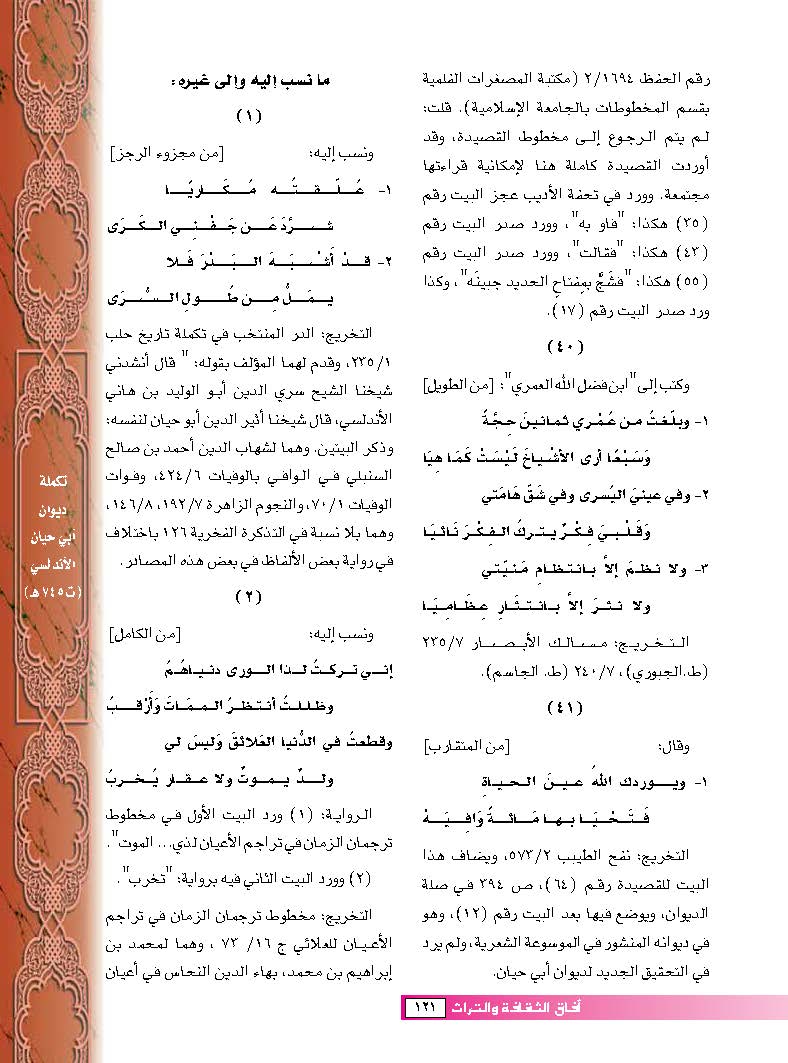 رقم الحفظ ٢/١٦٩٤ (مكتبة المصغرات الفلمية
بقسم المخطوطات بالجامعة الإسلامية). قلت:
لم يتم الرجوع إلى مخطوط القصيدة، وقد
أوردت القصيدة كاملة هنا لإمكانية قراءتها
مجتمعة. وورد في تحفة الأديب عجز البيت رقم
(٣٥) هكذا: "فاو به"، وورد صدر البيت رقم
(٤٣) هكذا: "فقالت"، وورد صدر البيت رقم
(٥٥) هكذا: "فشَجَّ بمِفتاحِ الحديد جبينَه"، وكذا
ورد صدر البيت رقم (١٧).
(٤٠)
وكتب إلى "ابن فضل الله العمري": [من الطويل]
١- وبلّغتُ من عُمْري ثمانينَ حِجَّةً
وَسَبْعًا أرى الأشْياخَ لَيْسَتْ كَمَا هِيَا
٢- وفي عينيَ اليُسرى وفي شَقّ هَامَتي
وَقَلْبيَ فِكْرٌ يـتـركُ الـفِكْرَ نَائـيَـا
٣- ولا نـظـمَ إلاَّ بـانـتـظـامِ مَنيّتي
ولا نـثـرَ إلاَّ بـانـتـثـارِ عِظَـامِـيَـا
التـخـريـج: مـسـالـك الأبـصـار ٢٣٥/٧
(ط.الجبوري)، ٢٤٠/٧ (ط. الجاسم).
(٤١)
وقال: [من المتقارب]
١- ويـــوردك اللهُ عـيـنَ الـحـيـاةِ
فَـتَـحْـيَـا بـهـا مَـائـةً وَافِـيَـهْ
التخريج: نفح الطيب ٥٧٣/٢، ويضاف هذا
البيت للقصيدة رقـم (٦٤)، ص ٣٩٤ فـي صلة
الديوان، ويوضع فيها بعد البيت رقم (١٢)، وهو
في ديوانه المنشور في الموسوعة الشعرية، ولم يرد
في التحقيق الجديد لديوان أبي حيان.
ما نسب إليه وإلى غيره:
(١)
ونسب إليه: [من مجزوء الرجز]
١- عُــلّــقــتُــه مُــكَــاريًــا
شــرَّدَ عَــن جَــفْــنِــي الــكَــرَى
٢- قــدْ أَشْــبَــهَ الــبَــدْرَ فَــلا
يــمَــلُّ مِــن طُــولِ الــسُّــرَى
التخريج: الدر المنتخب في تكملة تاريخ حلب
٢٣٥/١، وقدم لهما المؤلف بقوله: " قال أنشدني
شيخنا الشيخ سري الدين أبـو الوليد بن هاني
الأندلسي، قال شيخنا أثير الدين أبو حيان لنفسه:
وذكر البيتين. وهما لشهاب الدين أحمد بن صالح
السنبلي فـي الـوافي بالوفيات ٤٢٤/٦، وفـوات
الوفيات ٧٠/١، والنجوم الزاهرة ١٩٢/٧، ١٤٦/٨،
وهما بلا نسبة في التذكرة الفخرية ١٢٦ باختلاف
في رواية بعض الألفاظ في بعض هذه المصادر.
(٢)
ونسب إليه: [من الكامل]
إنـي تـركـتُ لـذا الـورى دنـيـاهُـمُ
وظـلـلـتُ أنـتـظـرُ الـمـمَـاتَ وَأَرْقـــبُ
وقطعتُ في الدُّنيا العَلائقَ وَليسَ لي
ولـــدٌ يـــمـــوتُ ولا عــقــار يُـــخـــربُ
الـرواية: (١) ورد البيت الأول فـي مخطوط
ترجمان الزمان في تراجم الأعيان لذي... الموت".
(٢) وورد البيت الثاني فيه برواية: "تخرب".
التخريج: مخطوط ترجمان الزمان في تراجم
الأعـيـان للعلائي ج ١٦/ ٧٣ ، وهـما لمحمد بن
إبراهيم بن محمد، بهاء الدين النحاس في أعيان
تكملة
ديوان
أبي حيان
الأندلسي
(ت٧٤٥هـ)
آفاق الثقافة والتراث ١٢١